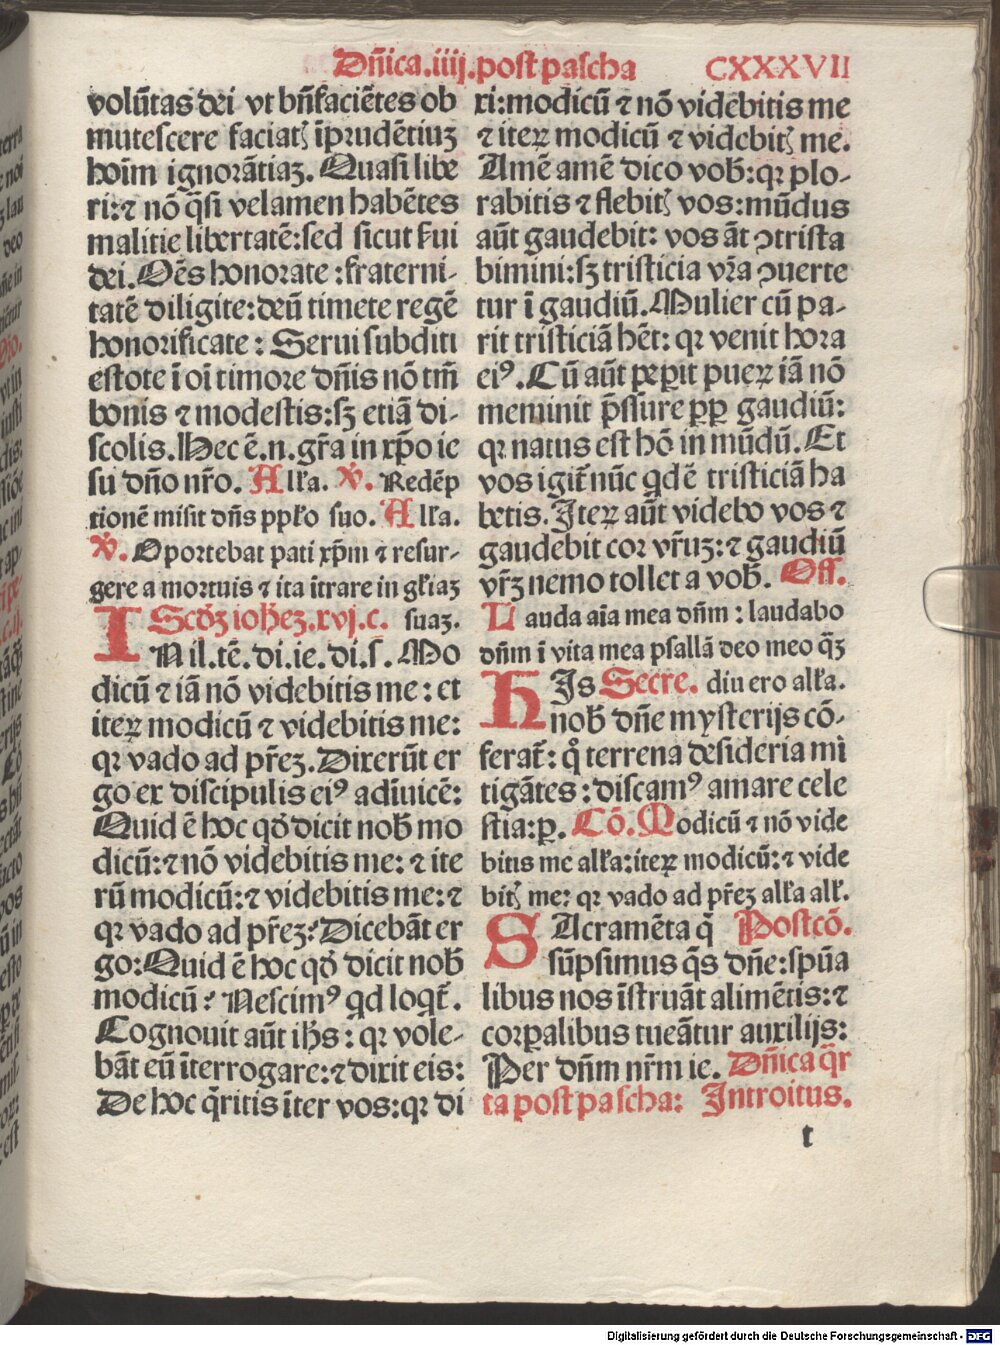 Dñica.iiij.post pascha CXXXVII
volũtas dei vt bñfaciẽtes ob
mutescere faciatꝭ ĩprudẽtiuꝫ
hoĩm ignorãtiaꝫ. Quasi libe
ri: ⁊ nõ q̃si velamen habẽtes
malitie libertatẽ: sed sicut ẜui
dei. Oẽs honorate: fraterni-
tatẽ diligite: deũ timete regẽ
honorificate: Serui subditi
estote ĩ oĩ timore dñis nõ tm̃
bonis ⁊ modestis: sꝫ etiã di-
scolis. Hec ẽ.n. gr̃a in xp̃o ie
su dño nr̃o. Alła. ℣. Redẽp
tionẽ misit dñs ppło suo. Alła.
℣. Oportebat pati xp̃m ⁊ resur-
gere a mortuis ⁊ ita ĩtrare in głiaꝫ
Scđꝫ ioħeꝫ.xvj.c. suaꝫ.
IN il.tẽ.di.ie.di.s. Mo
dicũ ⁊ iã nõ videbitis me: et
iteꝝ modicũ ⁊ videbitis me:
qꝛ vado ad pr̃eꝫ. Dixerũt er
go ex discipulis eiꝰ adĩuicẽ:
Quid ẽ hoc qđ dicit nob̃ mo
dicũ: ⁊ nõ videbitis me: ⁊ ite
rũ modicũ: ⁊ videbitis me: ⁊
qꝛ vado ad pr̃eꝫ? Dicebãt er
go: Quid ẽ hoc qđ dicit nob̃
modicũ? Nescimꝰ qd loqt̃.
Cognouit aũt ih̃s: qꝛ vole-
bãt eũ ĩterrogare: ⁊ dixit eis:
De hoc q̃ritis ĩter vos: qꝛ di
xi: modicũ ⁊ nõ videbitis me
⁊ iteꝝ modicũ ⁊ videbitꝭ me.
Amẽ amẽ dico vob̃: qꝛ plo-
rabitis ⁊ flebitꝭ vos: mũdus
aũt gaudebit: vos ãt ꝯtrista
bimini: sꝫ tristicia vr̃a ꝯuerte
tur ĩ gaudiũ. Mulier cũ pa-
rit tristiciã hẽt: qꝛ venit hora
eiꝰ. Cũ aũt peꝑit pueꝝ iã nõ
meminit p̃ssure ꝓp gaudiũ:
qꝛ natus est hõ in mũdũ. Et
vos igit̃ nũc qdẽ tristiciã ha
betis. Iteꝝ aũt videbo vos ⁊
gaudebit cor vr̃uꝫ: ⁊ gaudiũ
vr̃ꝫ nemo tollet a vob̃. Off.
Lauda aĩa mea dñm: laudabo
dñm ĩ vita mea psallã deo meo q̃ꝫ
HIs Secre. diu ero alła.
nob̃ dñe mysterijs cõ-
ferat̃: q̃ terrena desideria mĩ
tigãtes: discamꝰ amare cele
stia: ꝑ. Cõ. Modicũ ⁊ nõ vide
bitis me alła: iteꝝ modicũ: ⁊ vide
bitꝭ me: qꝛ vado ad pr̃eꝫ alła alł.
SAcramẽta q̃ Postcõ.
sũpsimus q̃s dñe: spũa
libus nos ĩstruãt alimẽtis: ⁊
corꝑalibus tueãtur auxilijs:
Per dñm nr̃m ie. Dñica q̃r
ta post pascha: Introitus.
t
Digitalisierung gefördert durch die Deutsche Forschungsgemeinschaft - DFG